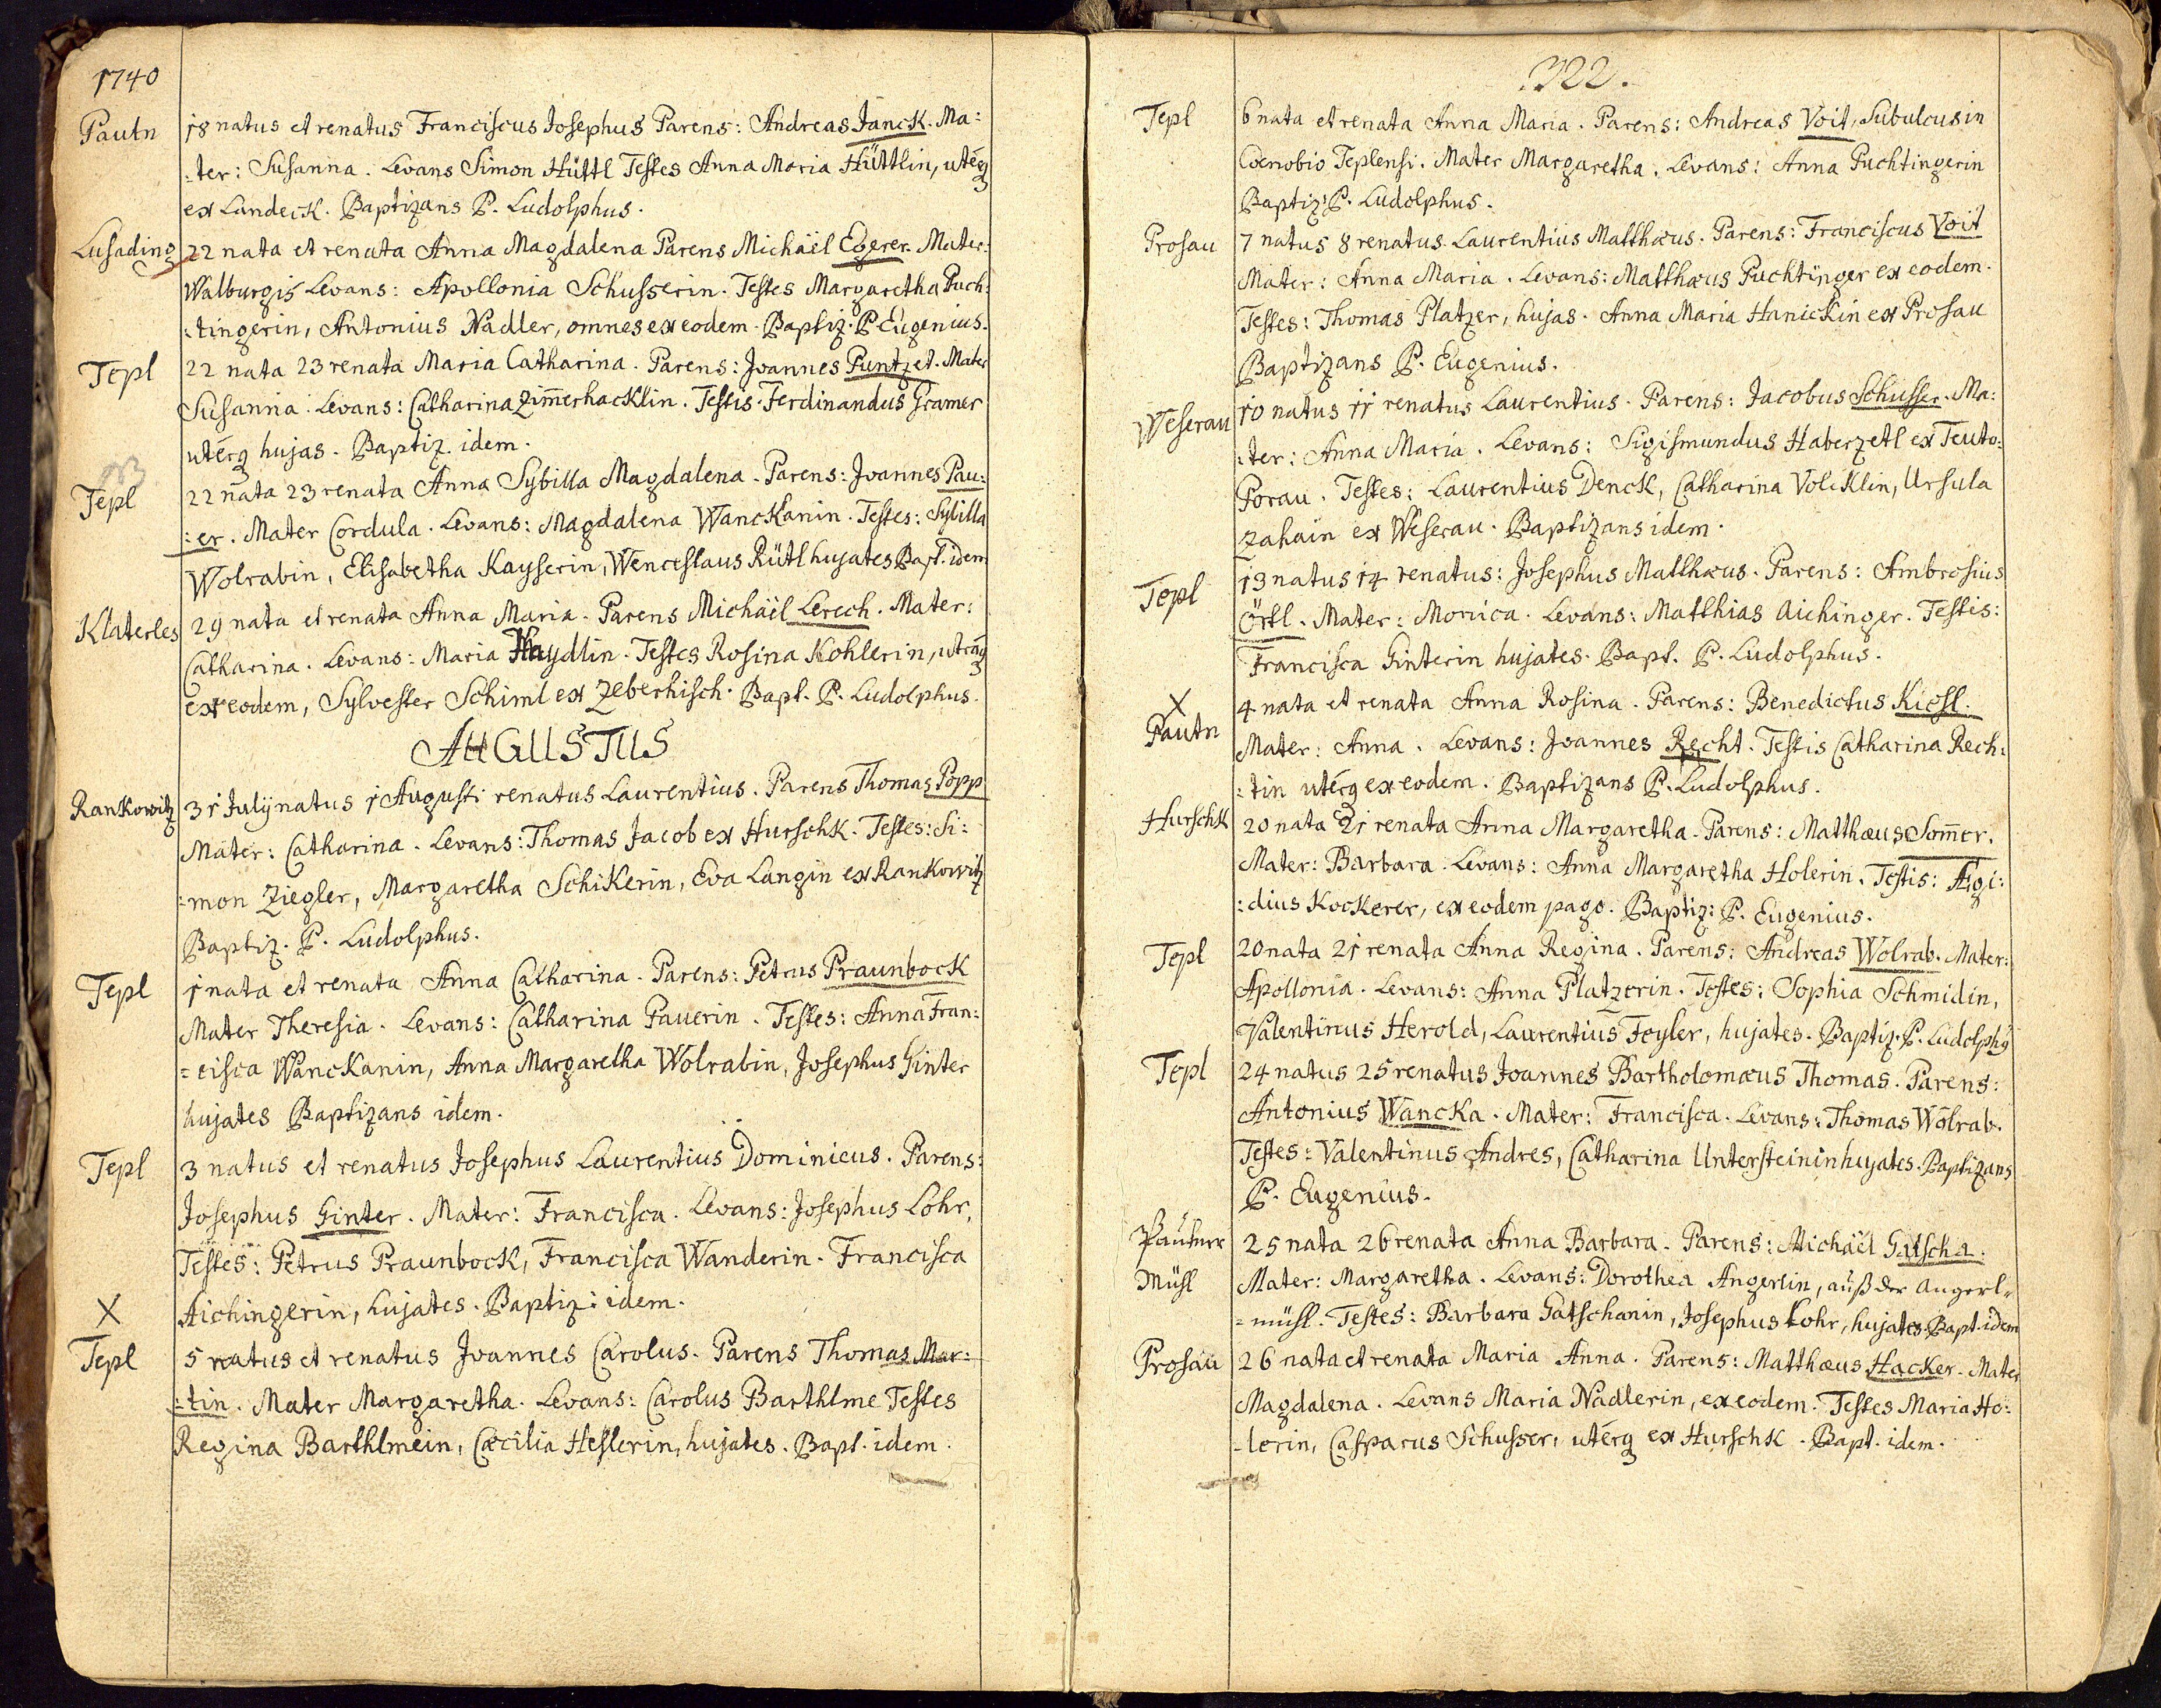 1740
Pautn 18 natus et renatus Franciscus Josephus Parens: Andreas Janck. Ma:
:ter: Susanna. Levans Simon Hüttl Testes Anna Maria Hüttlin, uterq
ex Landeck. Baptizans P. Ludolphus.
Lusading 22 nata et renata Anna Magdalena Parens Michäel Egerer. Mater:
Walburgis Levans: Apollonia Schusserin. Testes Margaretha Puch:
:tingerin, Antonius Nadler, omnes ex eodem. Baptiz. P. Eugenius.
Tepl 22 nata 23 renata Maria Catharina. Parens: Joannes Puntzet. Mater
Susanna. Levans: Catharina Zim̅erhacklin. Testis. Ferdinandus Gramer
uterq hujas. Baptiz. idem.
Tepl 22 nata 23 renata Anna Sybilla Magdalena. Parens: Joannes Pau:
:er. Mater Cordula. Levans: Magdalena Wanckanin. Testes: Sybilla
Wolrabin, Elisabetha Kayserin, Wenceslaus Rütl hujates Bapt. idem
Klaterles 29 nata et renata Anna Maria. Parens Michäel Lerech. Mater:
Catharina. Levans: Maria Haydlin. Testes Rosina Kohlerin, utraq
ex eodem, Sylvester Schiml ex Zeberhisch. Bapt. P. Ludolphus.
AUGUSTUS
Rankowitz 31 Julij natus 1 Augusti renatus Laurentius. Parens Thomas Popp
Mater: Catharina. Levans: Thomas Jacob ex Hurschk. Testes: Si:
:mon Ziegler, Margaretha Schikerin, Eva Langin ex Rankowitz
Baptiz. P. Ludolphus.
Tepl 1 nata et renata Anna Catharina. Parens: Petrus Praunbock
Mater Theresia. Levans: Catharina Pauerin. Testes: Anna Fran:
=cisca Wanckanin, Anna Margaretha Wolrabin, Josephus Ginter
hujates Baptizans idem.
Tepl 3 natus et renatus Josephus Laurentius Dominicus. Parens:
Josephus Ginter. Mater: Francisca. Levans: Josephus Lohr,
Testes: Petrus Praunbock, Francisca Wanderin. Francisca
X Aichingerin, hujates. Baptiz: idem.
Tepl 5 natus et renatus Joannes Carolus. Parens Thomas Mar:
:tin. Mater Margaretha. Levans: Carolus Barthlme Testes
Regina Barthlmein, Cæcilia Heslerin, hujates. Bapt. idem.
322.
Tepl 6 nata et renata Anna Maria. Parens: Andreas Voit, Subulcus in
Cœnobio Teplensi. Mater Margaretha. Levans: Anna Puchtingerin
Baptiz: P. Ludolphus.
Prosau 7 natus 8 renatus Laurentius Matthæus. Parens: Franciscus Voit
Mater: Anna Maria. Levans: Matthæus Puchtinger ex eodem.
Testes: Thomas Platzer, hujas. Anna Maria Hanickin ex Prosau
Baptizans P. Eugenius.
Weserau 10 natus 11 renatus Laurentius. Parens: Jacobus Schusser. Ma:
:ter: Anna Maria. Levans: Sigismundus Haberzetl ex Teuto:
Porau. Testes: Laurentius Denck, Catharina Volcklin, Ursula
Zahain ex Weserau. Baptizans idem.
Tepl 13 natus 14 renatus: Josephus Matthæus. Parens: Ambrosius
Örtl. Mater: Monica. Levans: Matthias Aichinger. Testis:
Francisca Ginterin hujates. Bapt. P. Ludolphus.
X
Pautn 4 nata et renata Anna Rosina. Parens: Benedictus Kiesl.
Mater: Anna. Levans: Joannes Recht. Testis Catharina Rech:
:tin uterq ex eodem. Baptizans P. Ludolphus.
Hurschk 20 nata 21 renata Anna Margaretha. Parens: Matthæus Som̅er.
Mater: Barbara. Levans: Anna Margaretha Holerin. Testis: Ægi:
:dius Kockerer, ex eodem pago. Baptiz: P. Eugenius.
Tepl 20 nata 21 renata Anna Regina. Parens: Andreas Wolrab. Mater:
Apollonia. Levans: Anna Platzerin. Testes: Sophia Schmidin,
Valentinus Herold, Laurentius Feyler, hujates. Baptiz. P. Ludolphq
Tepl 24 natus 25 renatus Joannes Bartholomæus Thomas. Parens:
Antonius Wancka. Mater: Francisca. Levans: Thomas Wolrab.
Testes: Valentinus Andres, Catharina Untersteinin hujates. Baptizans
P. Eugenius.
25 nata 26 renata Anna Barbara. Parens: Michäel Gatscha.
Mühl Mater: Margaretha. Levans: Dorothea Angerlin, auß der Angerl=
=mühl. Testes: Barbara Gatschanin, Josephus Lohr, hujates Bapt. idem
Prosau 26 nata et renata Maria Anna. Parens: Matthæus Hacker. Mater
Magdalena. Levans Maria Nadlerin, ex eodem. Testes Maria Ho:
-lerin, Casparus Schusser, uterq ex Hurschk. Bapt. idem.